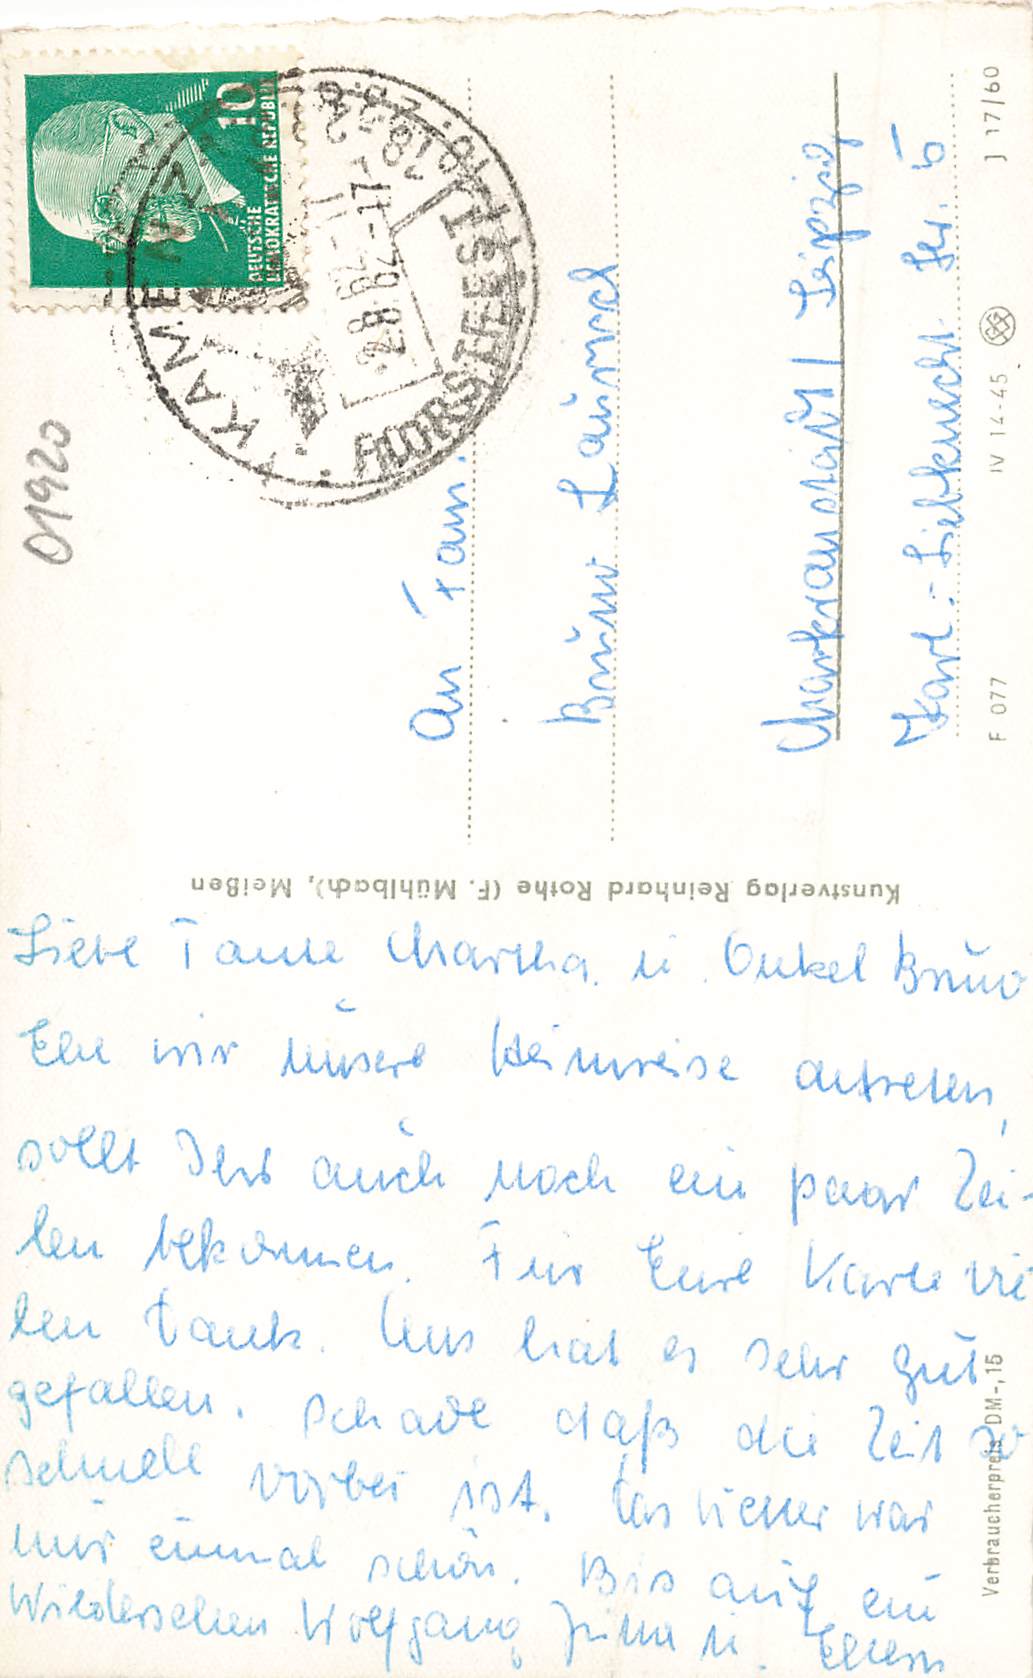 Liebe Tante Martha u. Onkel Bruno
Ehe wir unsere Heimreise antreten,
sollt Ihr auch noch ein paar Zei-
len bekommen. Für Eure Karte vie
len Dank. Uns hat es sehr gut
gefallen. Schade daß die Zeit so
schnell vorbei ist. Das Wetter war
nur einmal schön. Bis auf ein
Wiedersehen Wolfgang Jutta u. Eltern
Kunstverlag Reinhard Rothe (F. Mühlbach), Meißen
An Fam.
Bruno
Markranstädt / Leipzig
Karl-Liebknecht Str. 5
F 077 IV 14-45 J 17/60
Verbraucherpreis DM -,15
01920
10
DEUTSCHE
DEMOKRATISCHE REPUBLIK
KAMENZ
28.8.62-17
FORSTFEST